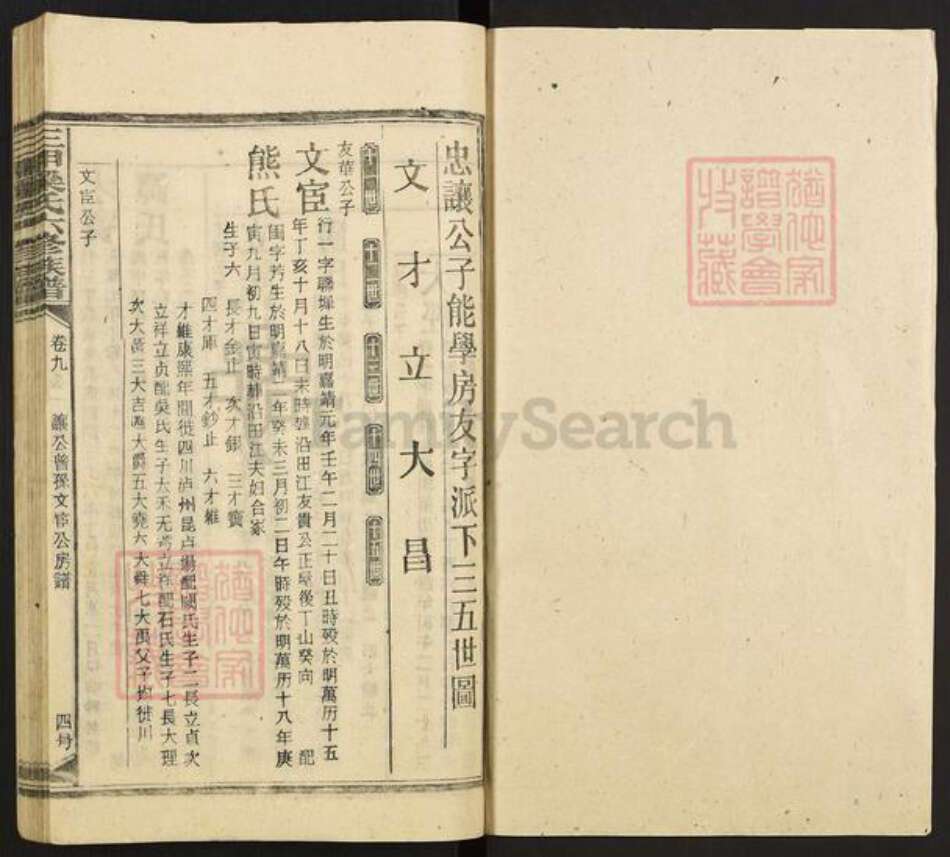 猶他家
譜學會
收藏
忠讓公子能學房友字派下三五世圖
文才立大昌
十一世 十二世 十三世 十四世 十五世
友華公子
文宦 行一字聯墀生於明嘉靖元年壬午二月二十日丑時殁於明萬历十五
年丁亥十月十八日未時塟沿田江友貴公正屋後丁山癸向 配
熊氏 閨字芳生於明嘉靖二年癸未三月初二日午時殁於明萬历十八年庚
寅九月初九日寅時塟沿田江夫妇合冢
生子六 長才金止 次才銀 三才寶
四才庫 五才鈔止 六才維
才維康熙年間徙四川泸州昆卢場配閻氏生子二長立貞次
立祥立贞配吳氏生子大禾无考立祥配石氏生子七長大理
次大黃三大吉四大爵五大堯六大舜七大禹父子均徙川
文宦公子
三甲梁氏六修族譜
卷九
讓公曾孫文宦公房譜
四册
FamilySearch